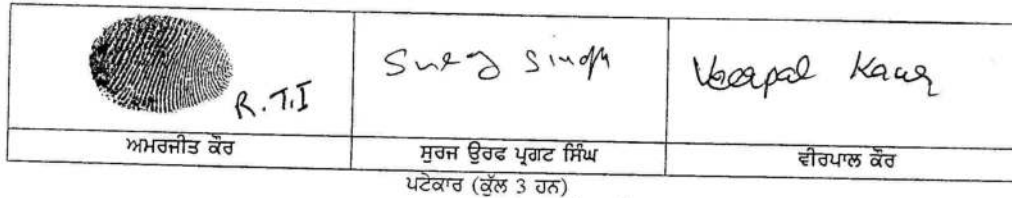 R.T.I
Suraj Singh
Veerpal Kaur
ਅਮਰਜੀਤ ਕੌਰ
ਸੁਰਜ ਉਰਫ ਪ੍ਰਗਟ ਸਿੰਘ
ਵੀਰਪਾਲ ਕੌਰ
ਪਟੇਕਾਰ (ਕੁੱਲ 3 ਹਨ)